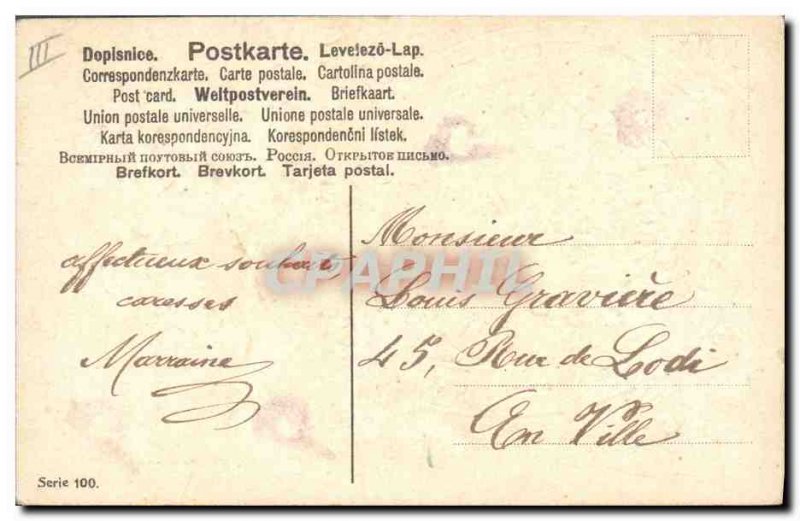 III
Dopisnice. Postkarte. Levelező-Lap.
Correspondenzkarte. Carte postale. Cartolina postale.
Post card. Weltpostverein. Briefkaart.
Union postale universelle. Unione postale universale.
Karta korespondencyjna. Korespondenční lístek.
Всемірный почтовый союзъ. Россія. Открытое письмо.
Brefkort. Brevkort. Tarjeta postal.
affectueux souhaits
caresses
Marraine
Monsieur
Louis Gravière
45, Rue de Lodi
En Ville
CPAPHIL
Serie 100.